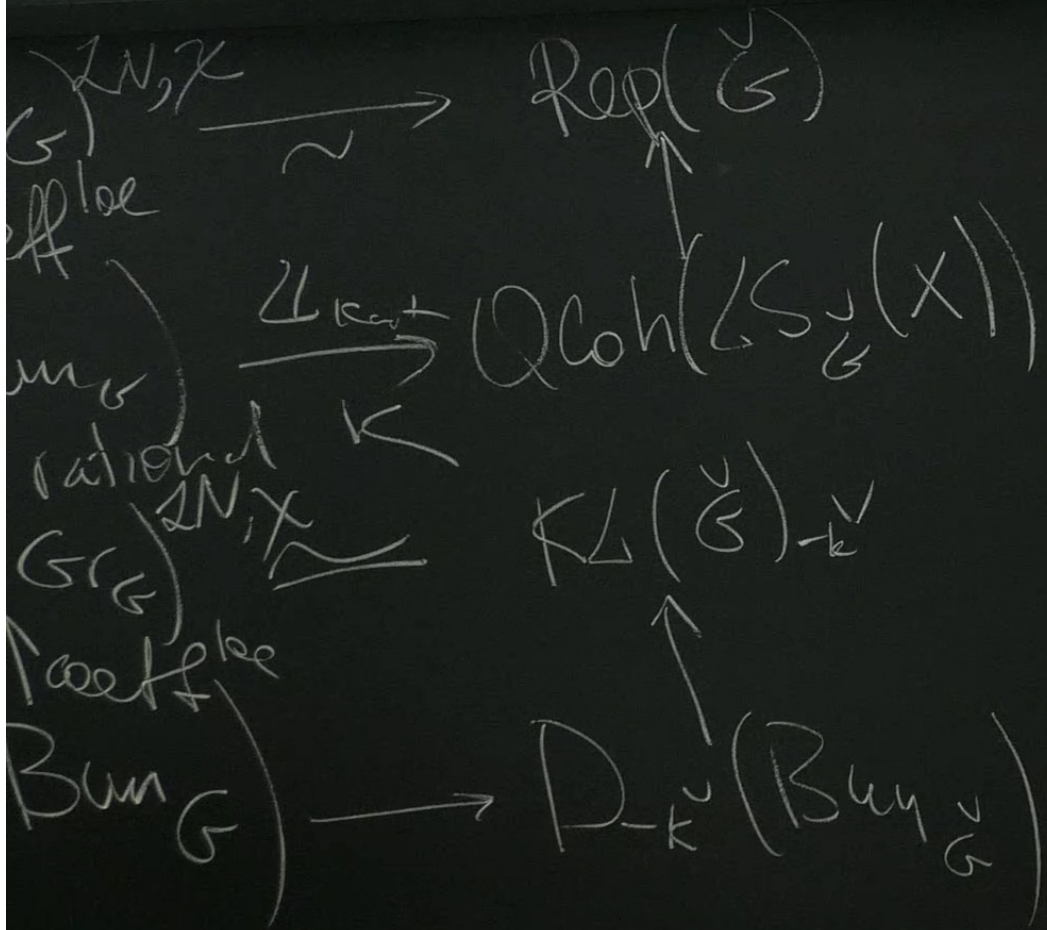 G)^{LN,χ} →~ Rep(Ǧ)
eff^{loc}
un_G) L_{Kcat} → QCoh(LS_Ǧ(X))
rational K
Gr_G)^{LN,χ} ≃ KL(Ǧ)_{-ǩ}
↑coeff^{loc}
Bun_G) → D_{-ǩ}(Bun_Ǧ)